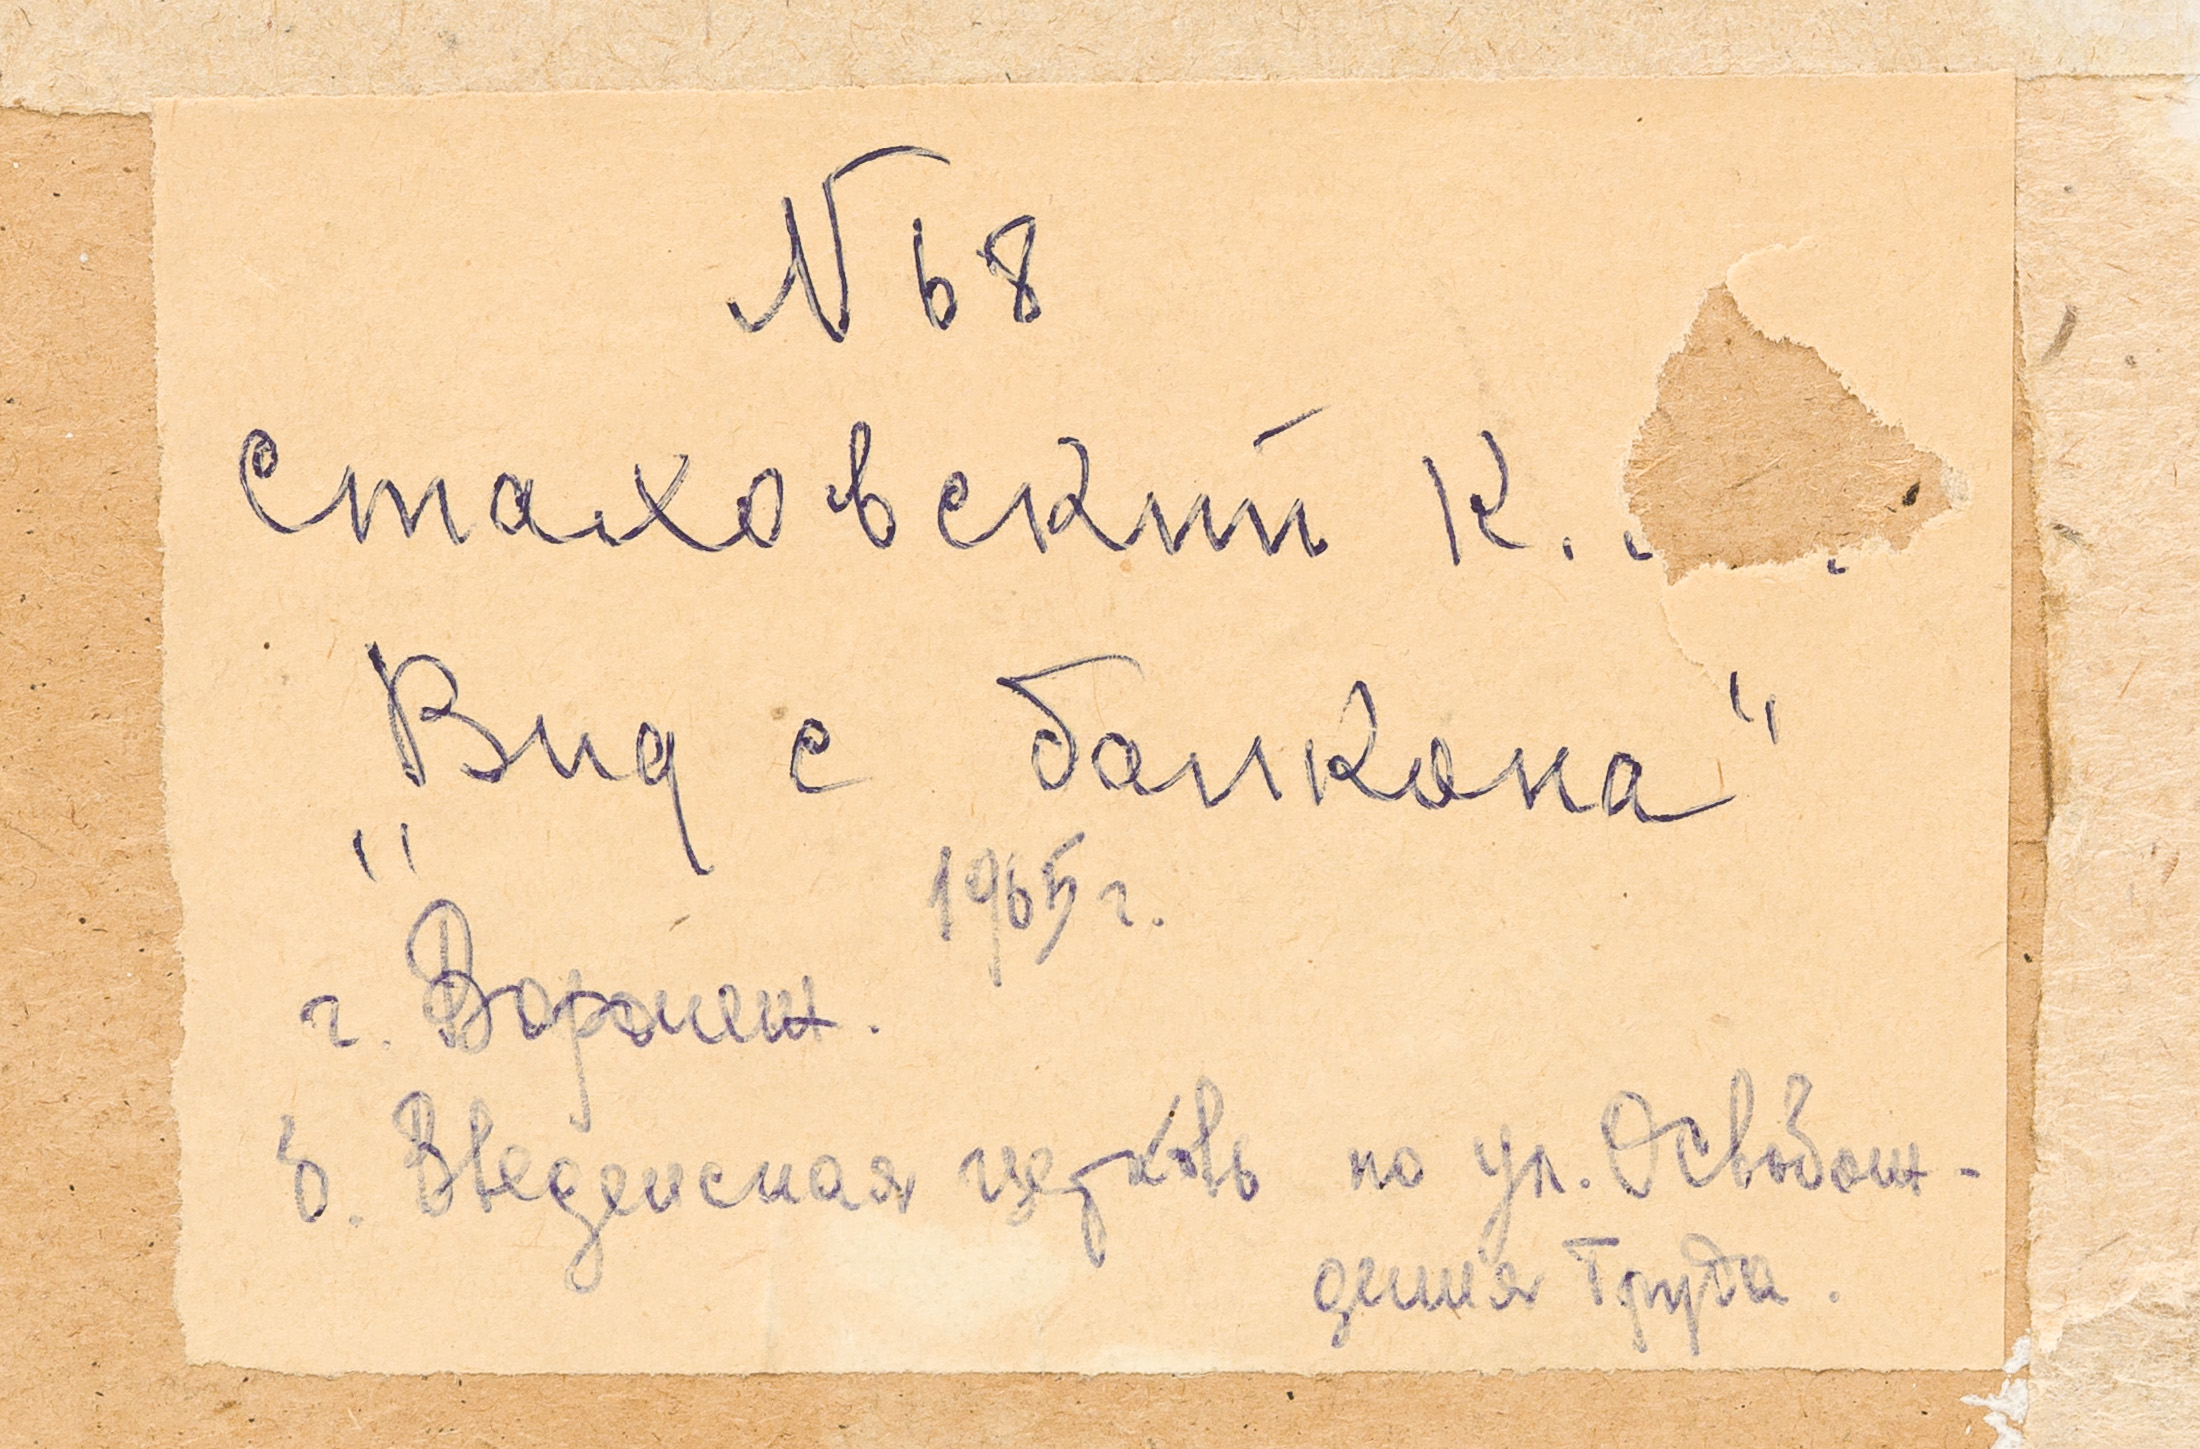 N 68
Стаховский К.
"Вид с балкона"
1965 г.
г. Воронеж.
б. Введенская церковь по ул. Освобож-
дения Труда.